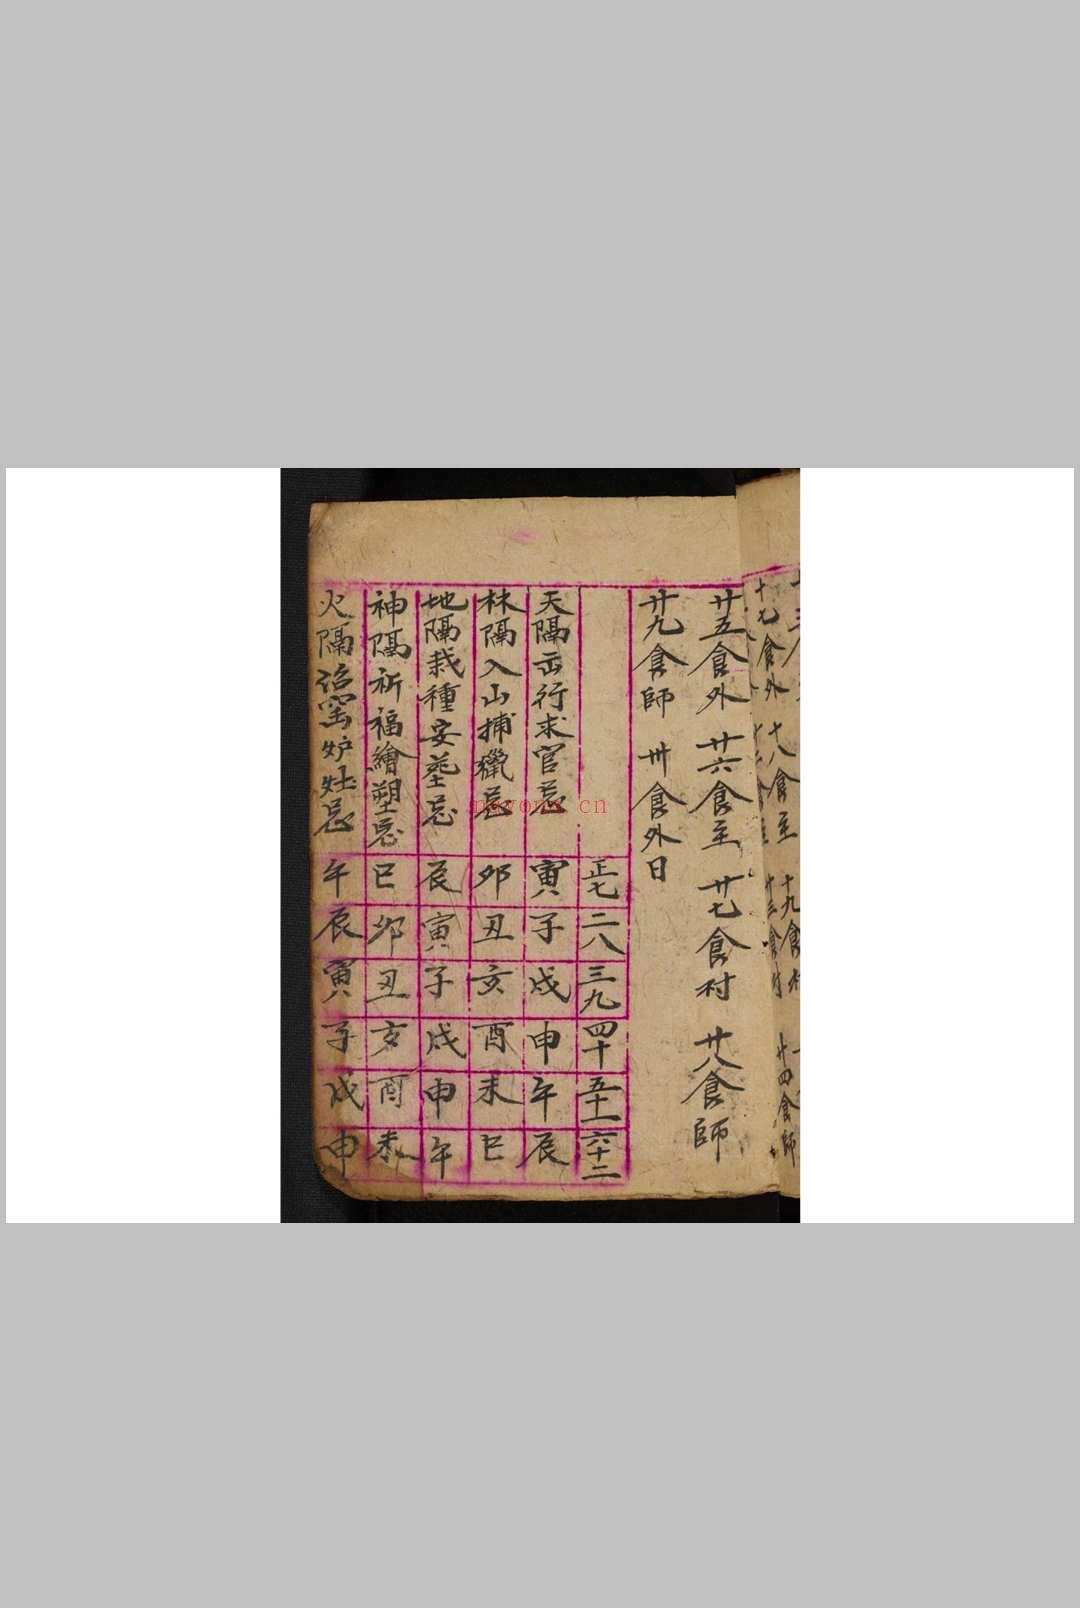 廿五食外 廿六食主 廿七食村 廿八食師
廿九食師 卅食外日
正七 二八 三九 四十 五十一 六十二
天隔出行求官忌 寅 子 戌 申 午 辰
林隔入山捕獵忌 卯 丑 亥 酉 未 巳
地隔栽種安塟忌 辰 寅 子 戌 申 午
神隔祈福繪塑忌 巳 卯 丑 亥 酉 未
火隔窑炉灶忌 午 辰 寅 子 戌 申
十七食外 十八食主 十九食村
廿四食師
nayona.cn